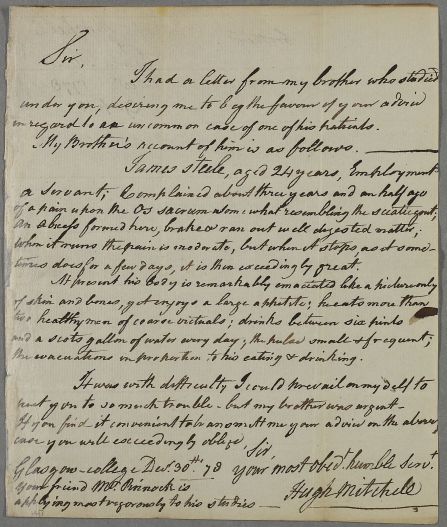 Sir,
I had a letter from my brother who studied
under you, desireing me to beg the favour of your advice
in regard to an uncommon case of one of his patients.
My Brother's account of him is as follows.
James Steele, aged 24 years, Employment
a servant; Complained about three years and an half ago
of a pain upon the Os sacrum some what resembling the sciatic gout.
An abcess formed here, brake & ran out well digested matter;
when it runs the pain is moderate, but when it stops, as it some-
times does for a few days, it is then exceedingly great.
At present his body is remarkably emaciated like a picture only
of skin and bones, yet enjoys a large appetite; he eats more than
two healthy men of coarse victuals; drinks between six pints
and a scots gallon of water every day; the pulse small & frequent;
the evacuations in proportion to his eating & drinking.
It was with difficulty I could prevail on my self to
put you to so much trouble - but my brother was urgent -
If you find it convenient to transmitt me your advice on the above
case you will exceedingly oblige
Sir,
Glasgow-college Decr. 30th. 78 your most obedt. humble Servt.
Your friend Mr. Pinnock is Hugh Mitchell
applying most vigorously to his studies